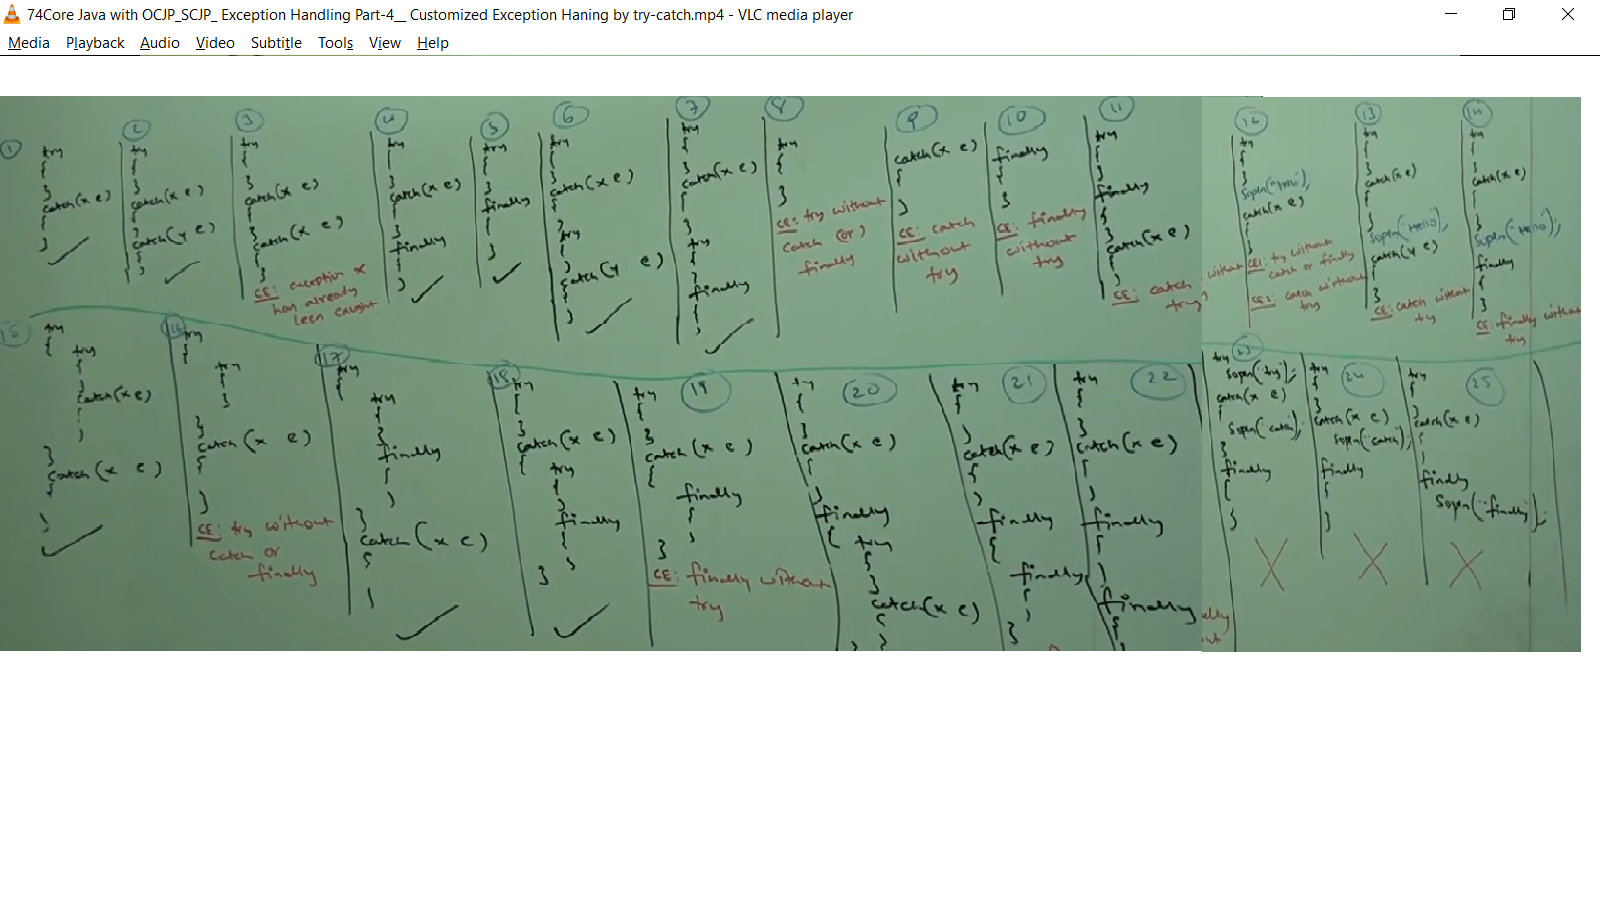 74Core Java with OCJP_SCJP_ Exception Handling Part-4__ Customized Exception Haning by try-catch.mp4 - VLC media player
Media Playback Audio Video Subtitle Tools View Help
1
try
{
}
catch(x e)
{
}
2
try
{
}
catch(x e)
{
}
catch(y e)
{
}
3
try
{
}
catch(x e)
{
}
catch(x e)
{
}
CE: exception x
has already
been caught
4
try
{
}
catch(x e)
{
}
finally
{
}
5
try
{
}
finally
{
}
6
try
{
}
catch(x e)
{
}
try
{
}
catch(y e)
{
}
7
try
{
}
catch(x e)
{
}
try
{
}
finally
{
}
8
try
{
}
CE: try without
catch (or)
finally
9
catch(x e)
{
}
CE: catch
without
try
10
finally
{
}
CE: finally
without
try
11
try
{
}
finally
{
}
catch(x e)
{
}
CE: catch without
try
12
try
{
}
Sopln("Hello");
catch(x e)
{
}
CE1: try without
catch or finally
CE2: catch without
try
13
try
{
}
catch(x e)
{
}
Sopln("Hello");
catch(y e)
{
}
CE: catch without
try
14
try
{
}
catch(x e)
{
}
Sopln("Hello");
finally
{
}
CE: finally without
try
15
try
{
try
{
}
catch(x e)
{
}
}
catch(x e)
{
}
16
try
{
try
{
}
}
catch(x e)
{
}
CE: try without
catch or
finally
17
try
{
try
{
}
finally
{
}
}
catch(x e)
{
}
18
try
{
}
catch(x e)
{
try
{
}
finally
{
}
}
19
try
{
}
catch(x e)
{
finally
{
}
}
CE: finally without
try
20
try
{
}
catch(x e)
{
}
finally
{
try
{
}
catch(x e)
{
}
}
21
try
{
}
catch(x e)
{
}
finally
{
finally
{
}
}
22
try
{
}
catch(x e)
{
}
finally
{
}
finally
{
}
23
try
Sopln("try");
catch(x e)
{
Sopln("catch");
}
finally
{
}
24
try
{
}
catch(x e)
Sopln("catch");
finally
{
}
25
try
{
}
catch(x e)
{
}
finally
Sopln("finally");